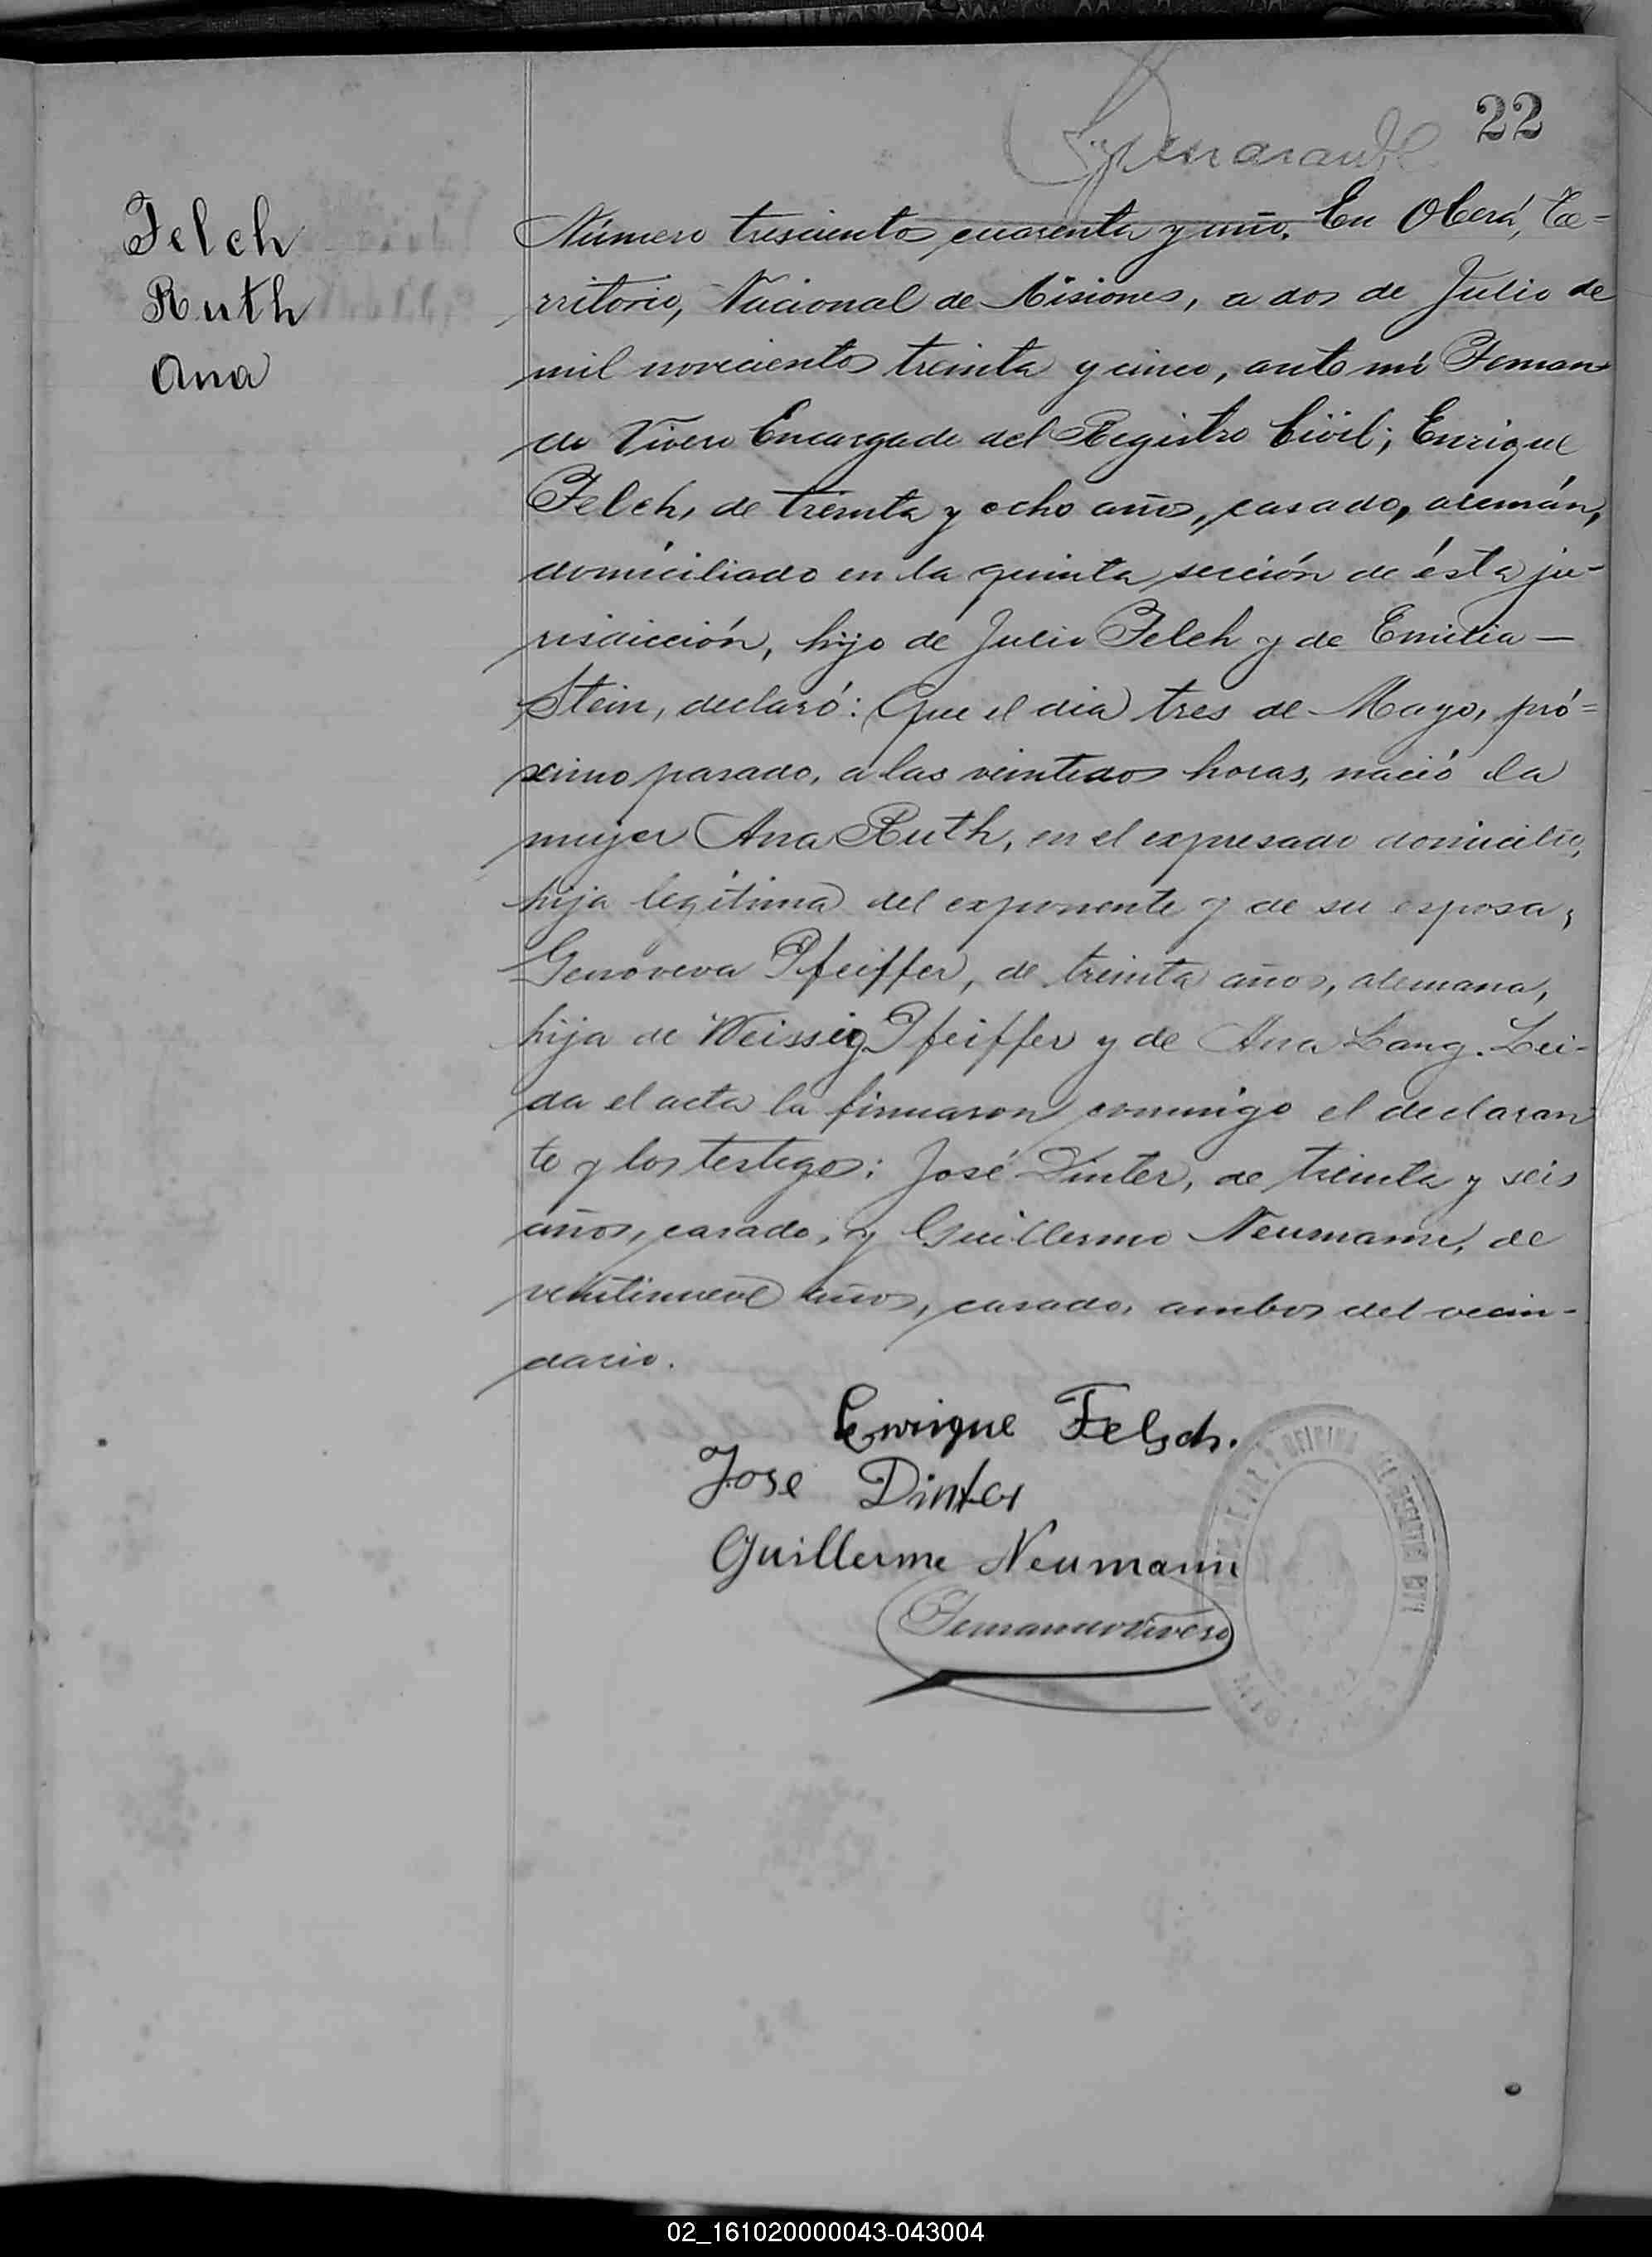 22
Felch
Ruth
Ana
Número trescientos cuarenta y uno. En Oberá, Te=
rritorio, Nacional de Misiones, a dos de Julio de
mil novecientos treinta y cinco, ante mí Fernan
do Vivero Encargado del Registro Civil; Enrique
Felch, de treinta y ocho años, casado, alemán,
domiciliado en la quinta sección de ésta ju-
risdicción, hijo de Julio Felch y de Emilia —
Stein, declaró: Que el dia tres de Mayo, pró=
ximo pasado, a las veintidos horas, nació la
mujer Ana Ruth, en el expresado domicilio,
hija legítima del exponente y de su esposa,
Genoveva Pfeiffer, de treinta años, alemana,
hija de Weissig Pfeiffer y de Ana Lang. Leí-
da el acta la firmaron conmigo el declaran
te y los testigos: José Dinter, de treinta y seis
años, casado, y Guillermo Neumann, de
veintinueve años, casado, ambos del vecin-
dario.
Enrique Felsch.
Jose Dinter
Guillermo Neumann
Fernando Vivero
02_161020000043-043004